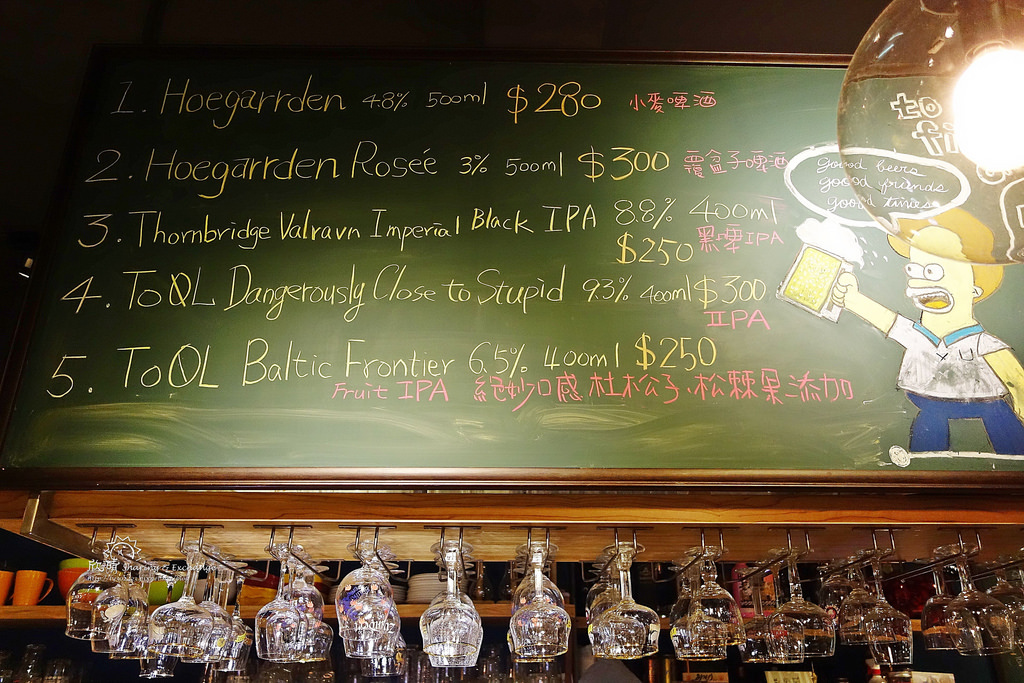 1. Hoegarrden 4.8% 500ml $280 小麥啤酒
2. Hoegarrden Roseé 3% 500ml $300 覆盆子啤酒
3. Thornbridge Valravn Imperial Black IPA 8.8% 400ml
$250 黑啤IPA
4. ToØL Dangerously Close to Stupid 9.3% 400ml $300
IIPA
5. ToØL Baltic Frontier 6.5% 400ml $250
Fruit IPA 絕妙口感 杜松子、松棘果添加
good beers
good friends
good times
to
fi
Sharing & Exchange